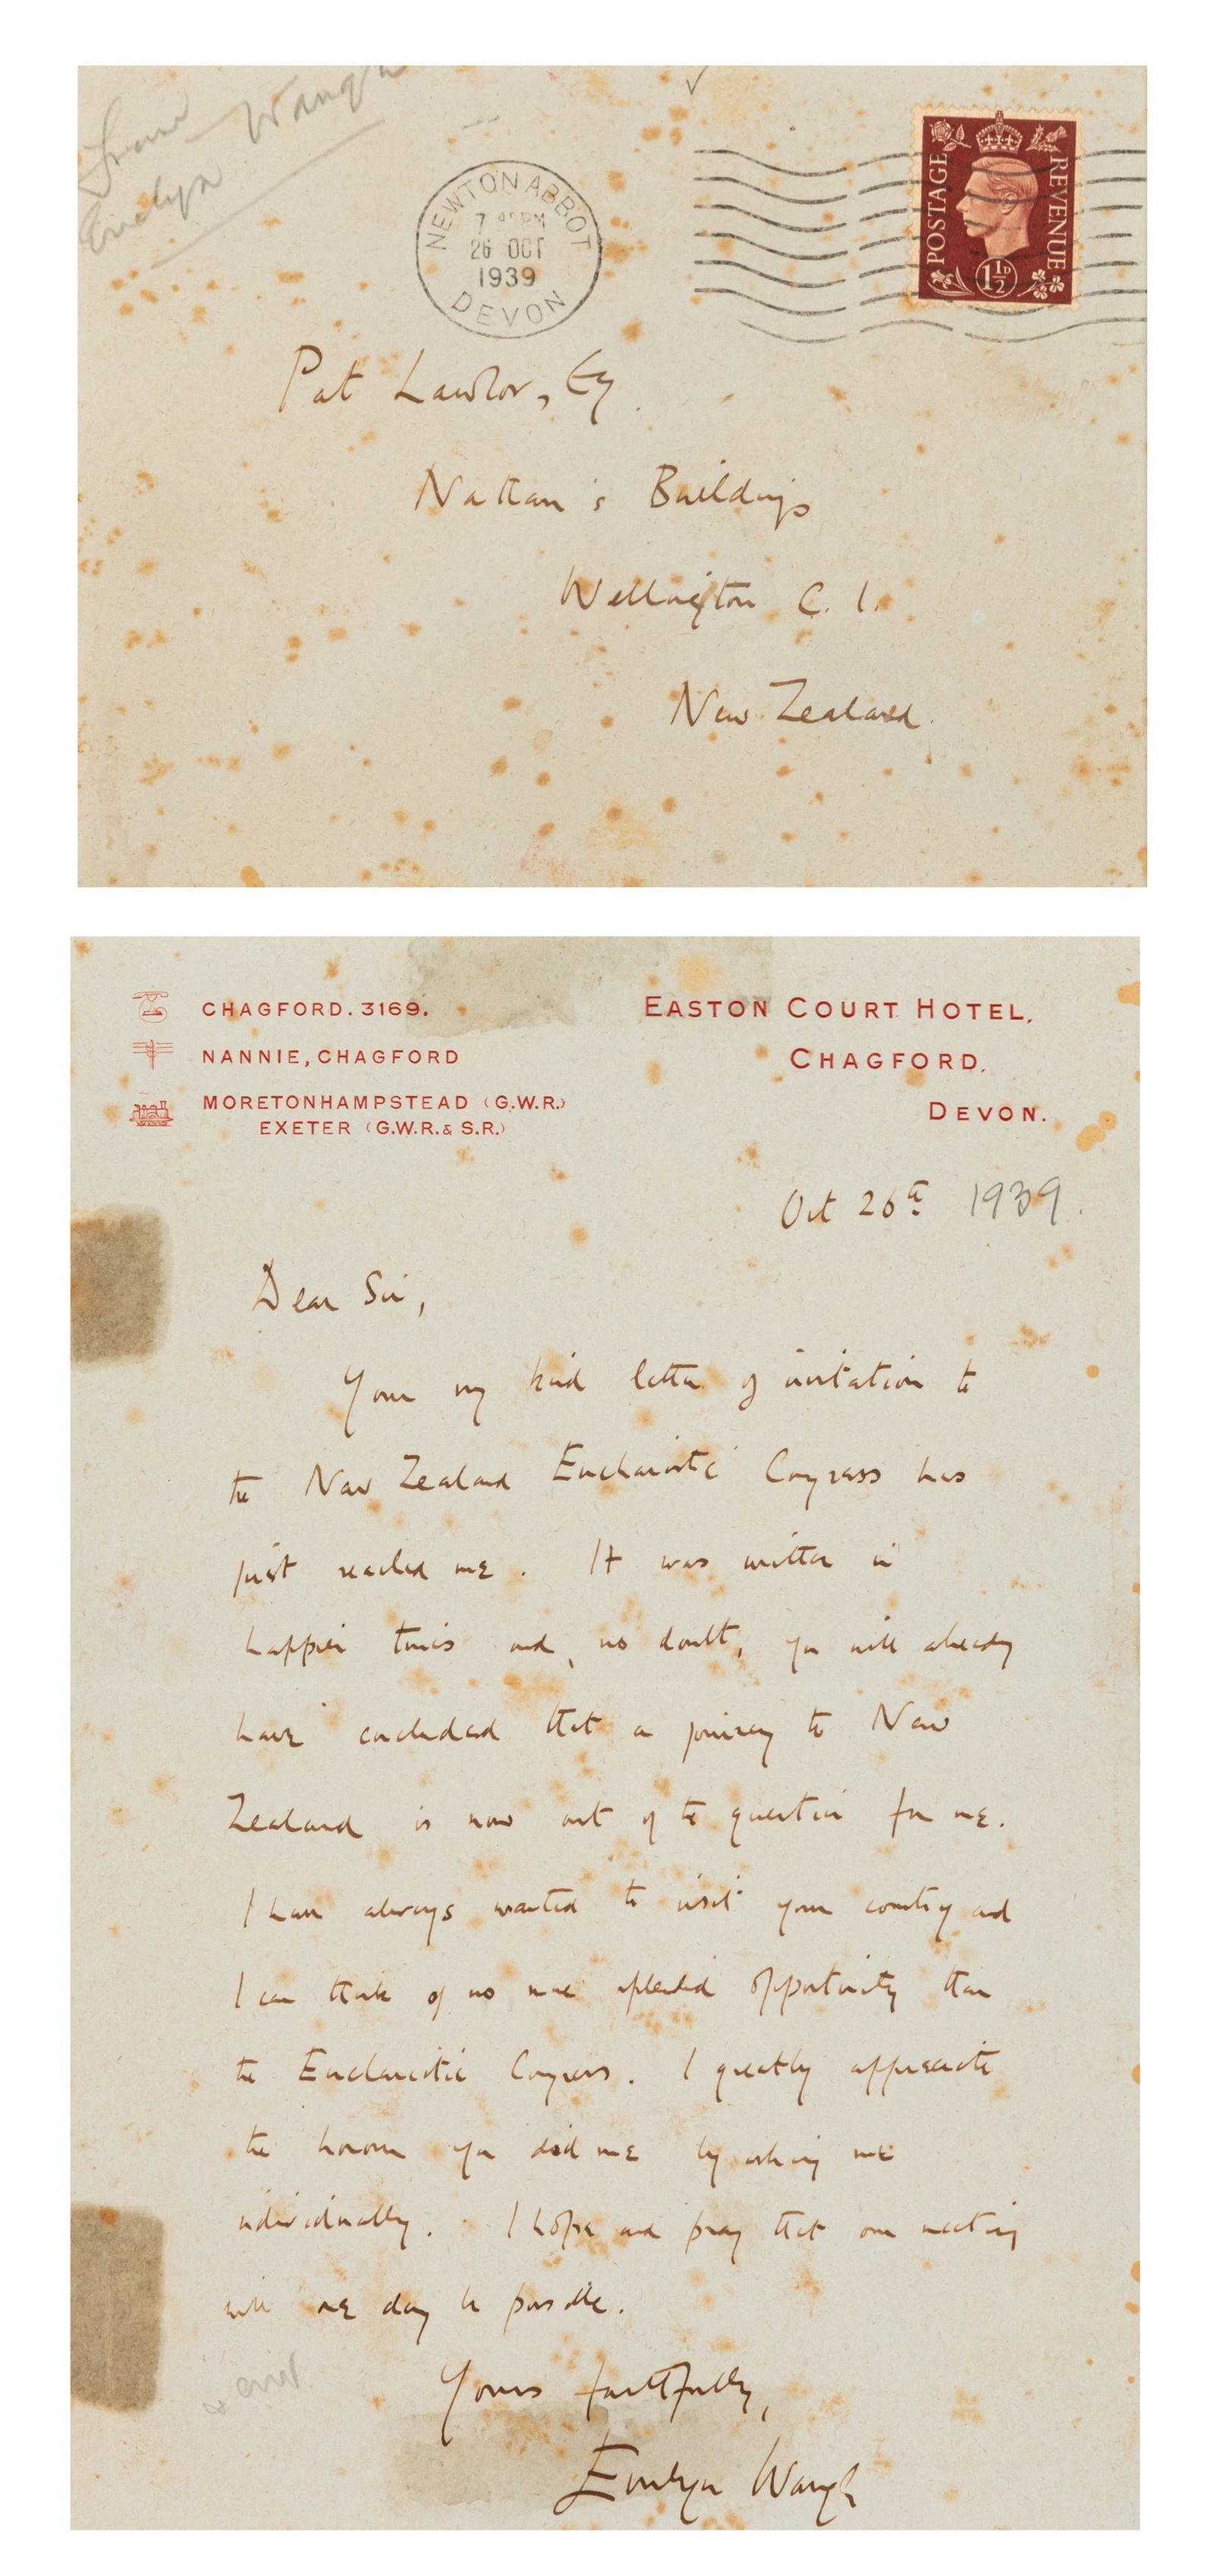 From
Evelyn Waugh
NEWTON ABBOT
26 OCT
1939
DEVON
POSTAGE
REVENUE
1½D
Pat Lawlor, Esq.
Nathan's Buildings
Wellington C. 1.
New Zealand.
CHAGFORD. 3169.
NANNIE, CHAGFORD
MORETONHAMPSTEAD (G.W.R.)
EXETER (G.W.R. & S.R.)
EASTON COURT HOTEL,
CHAGFORD.
DEVON.
Oct 26th 1939.
Dear Sir,
Your very kind letter of invitation to
the New Zealand Eucharistic Congress has
just reached me. It was written in
happier times and, no doubt, you will already
have concluded that a journey to New
Zealand is now out of the question for me.
I have always wanted to visit your country and
I can think of no more splendid opportunity than
the Eucharistic Congress. I greatly appreciate
the honour you did me by asking me
individually. I hope and pray that our meeting
will one day be possible.
Yours faithfully,
Evelyn Waugh